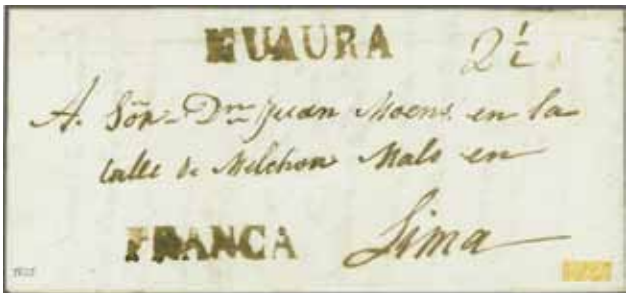 HUAURA 2½
A. Sör. Dn Juan Moens en la
Calle de Melchor Malo en
FRANCA Lima